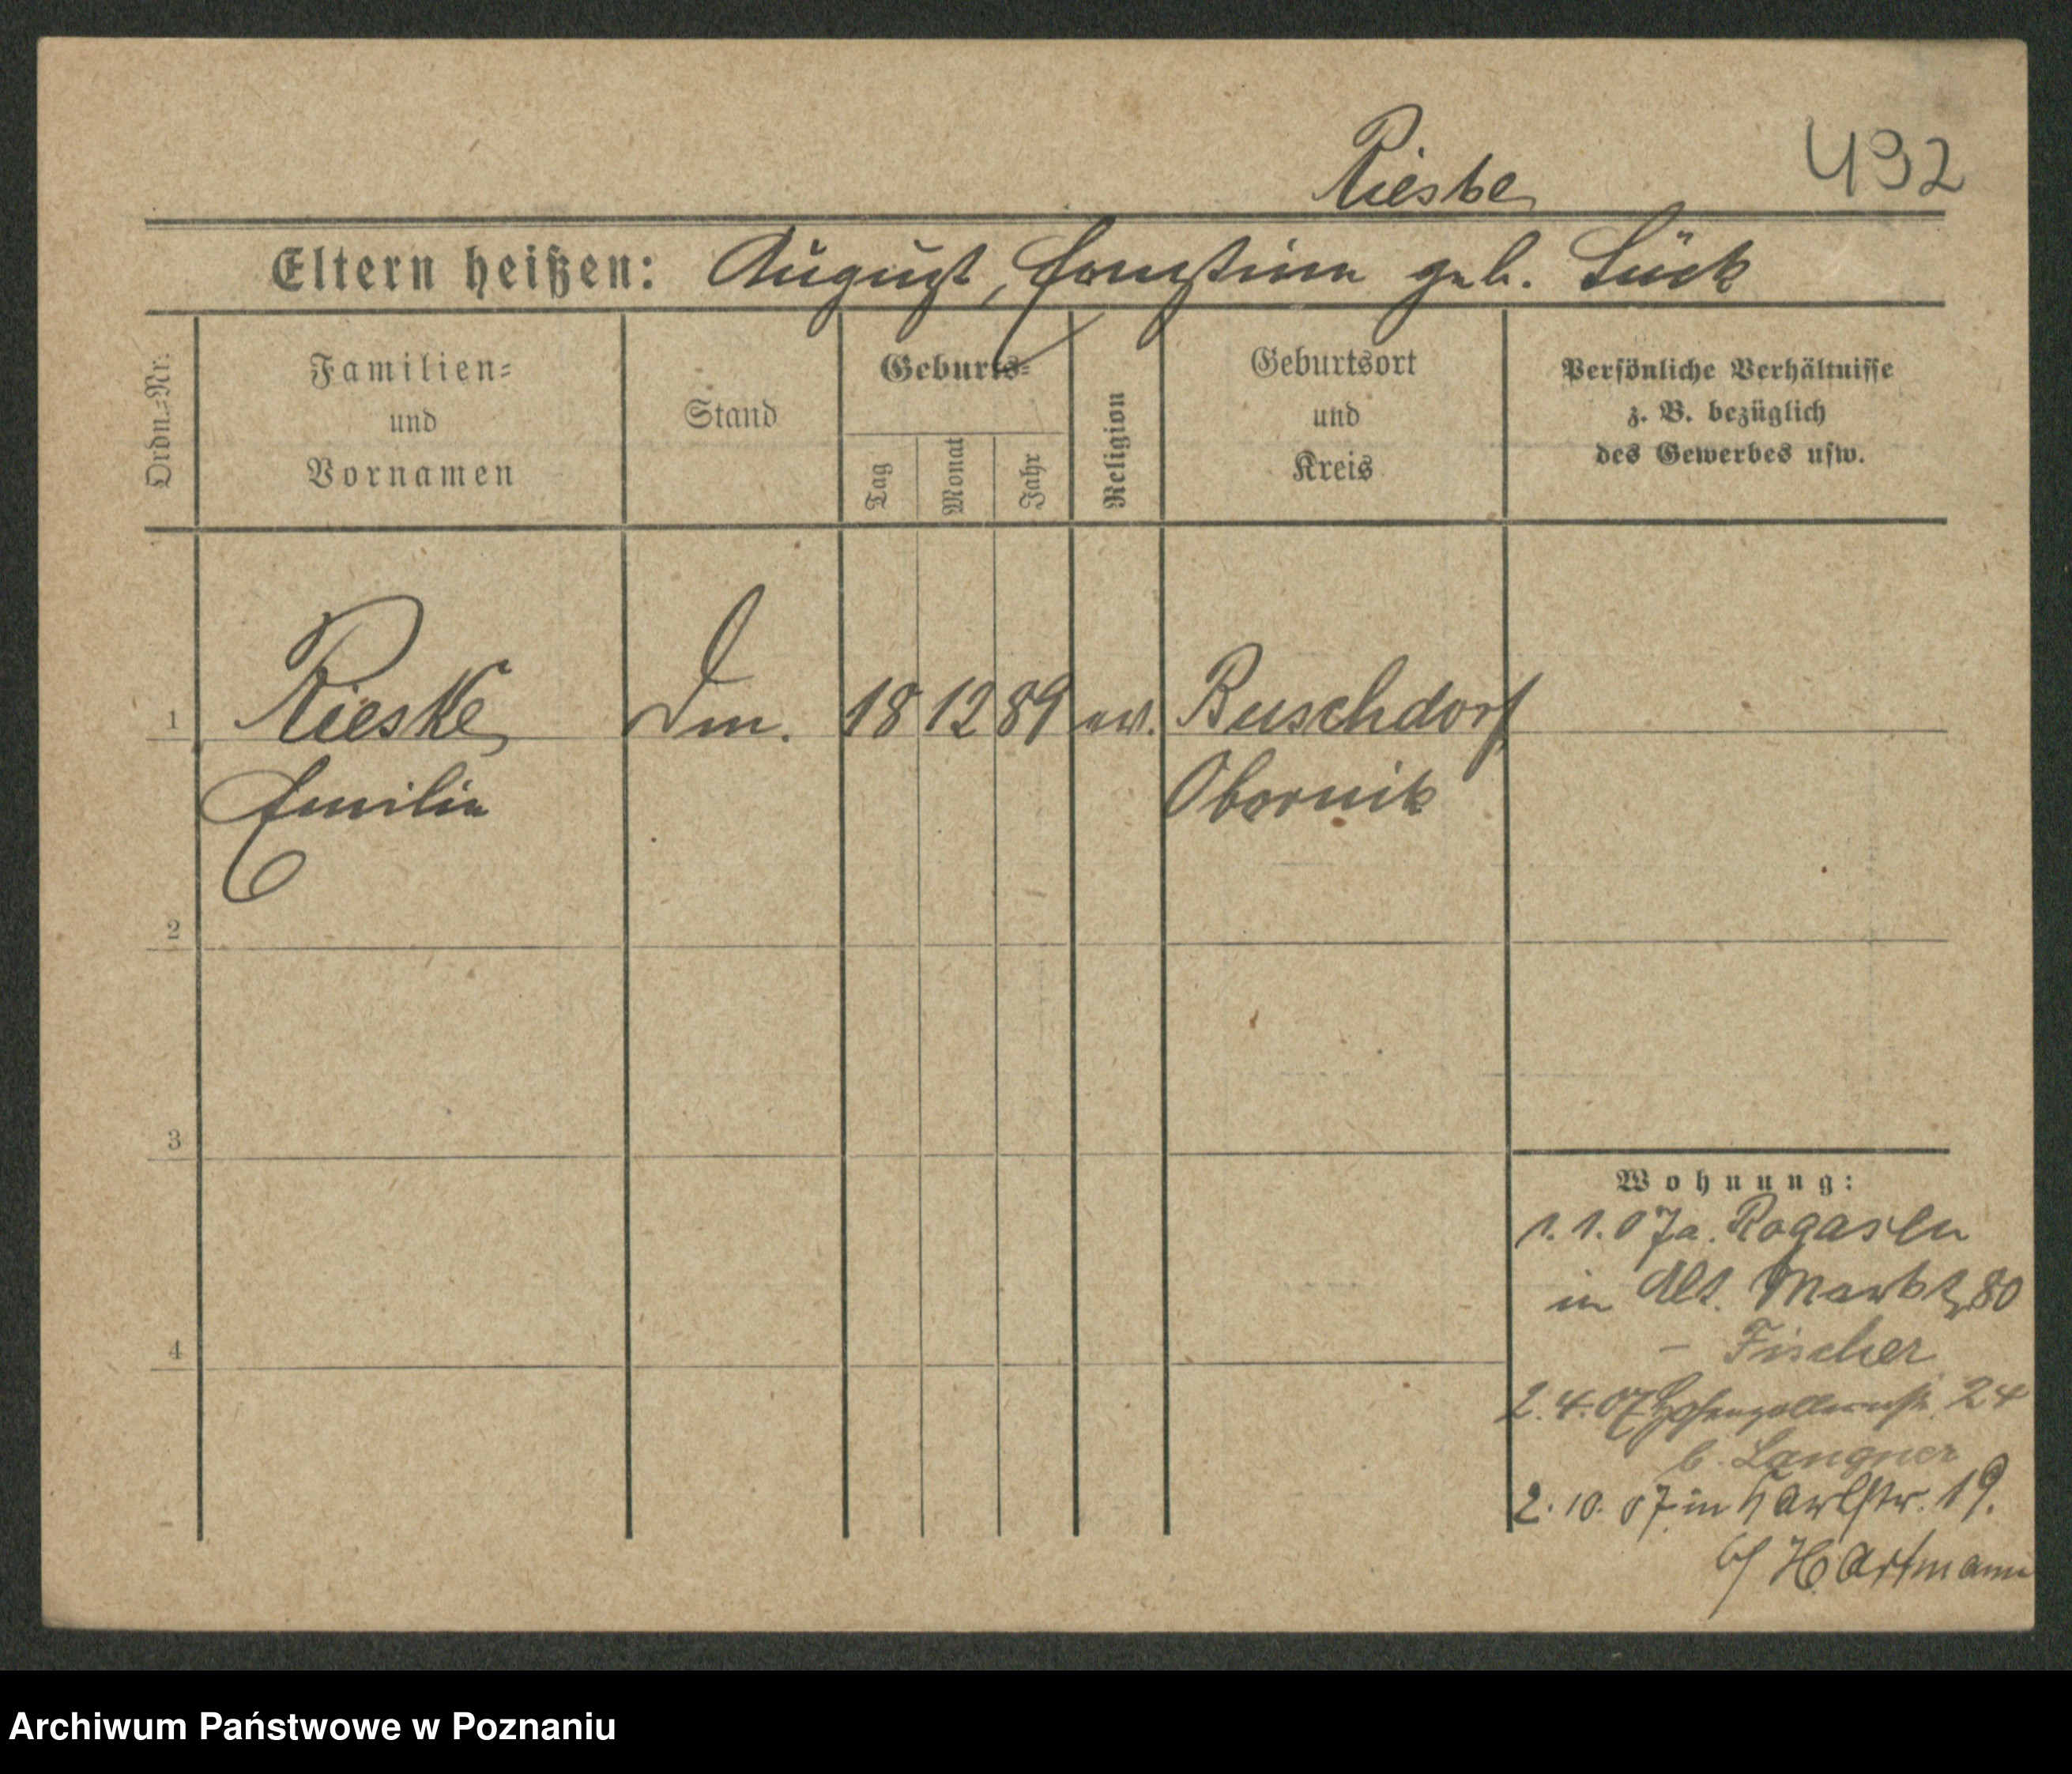 492
Rieske
Eltern heißen: August, Ernstine geb. Lück
Ordn.-Nr.
Familien- und Vornamen
Stand
Geburts-
Tag
Monat
Jahr
Religion
Geburtsort und Kreis
Persönliche Verhältnisse z. B. bezüglich des Gewerbes usw.
1 Rieske Dm. 18 12 89 ev. Buschdorf
Emilie Obornik
2
3
4
Wohnung:
1. 1. 07 a. Rogasen
in Alt. Markt 80
- Fischer
2. 4. 07 Hohenzollernstr. 24
b. Langner
2. 10. 07 in Karlstr. 19.
b/ Hartmann
Archiwum Państwowe w Poznaniu